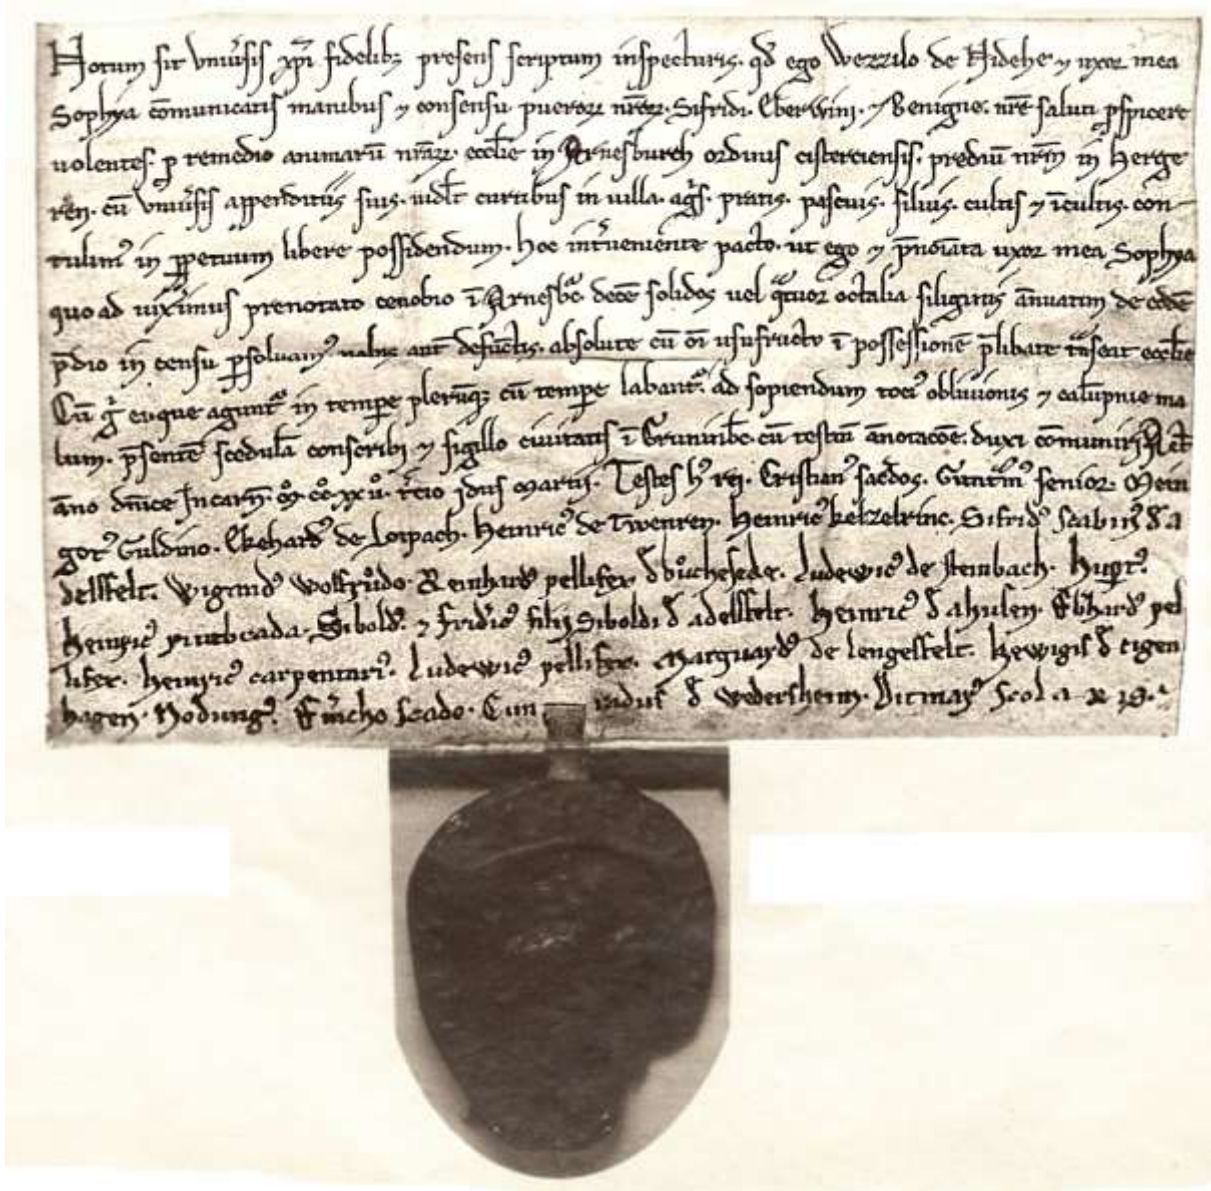 Notum sit vniu͛sis xp̅i fidelibȝ presens scriptum inspecturis. qd̅ ego Wezzilo de Nidehe ⁊ uxor mea
Sophya co̅municatis manibus ⁊ consensu pueroꝝ nr̅oꝝ. Sifridi. Eberwini. ⁊ Benigne. nr̅e saluti ꝓspicere
uolentes. ꝓ remedio animaru̅ nr̅aꝝ. eccl̅ie in Arnesburch ordinis cisterciensis. prediu̅ nr̅m in Herge
ren. cu̅ vniu͛sis appenditiis suis. uidl̅t curtibus in uilla. ag͛s. pratis. pascuis. siluis. cultis ⁊ i̅cultis. con-
tulimꝰ in ꝑpetuum libere possidendum. hoc int͛ueniente pacto. ut ego ⁊ p̅no̅i̅ata uxor mea Sophya
quo ad uixerimus prenotato cenobio i̅ Arnesb̅c. dece̅ solidos uel q̅tuor octalia siliginis annuatim de eode̅
p̅dio in censu ꝑsoluamꝰ nobis aut̅ defu̅ctis. absolute cu̅ o̅i usufructu i̅ possessione̅ p̅libate t̅nseat eccl̅ie
Cu̅ g͛ eaque agunt᷑ in tempe̅ pleru̅qȝ cu̅ tempe̅ labant᷑. ad sopiendum tociꝰ obliuionis ⁊ calu̅pnie ma
lum. p̅sente̅ scedula̅ conscribi ⁊ sigillo ciuitatis i̅ Gruninb̅c. cu̅ testiu̅ a̅notaco̅e. duxi co̅muniri. Act̅
a̅no dn̅ice Incarn̅. M̊. cc̊. xx̊ v̊. t͛cio idus Martii. Testes hꝰ rei. Cristianꝰ sac͛dos. Gunt̅mꝰ senior. Mein
gotꝰ Guldino. Ekehardꝰ de Loipach. Heinricꝰ de Twenren. Heinricꝰ kelzelrinc. Sifridꝰ scabinꝰ d̅ a
delsfelt. Wigandꝰ wolfrůdo. Reinhardꝰ pellifex d̅ bůchesecke. Ludewicꝰ de steinbach. Hup̅tꝰ.
Heinricꝰ Siboldꝰ. ⁊ frid͛icꝰ filij Siboldi d̅ adelsfelt. Heinricꝰ d̅ ahusen. Eb͛hardꝰ pel
lifex. Heinricꝰ carpentariꝰ. Ludewicꝰ pellifex. Marquardꝰ de lengesfelt. Hewigis d̅ eigen
hagen. Nodungꝰ. scado. Cun radus d̅ wedersheim. Ditmarꝰ scolaris.